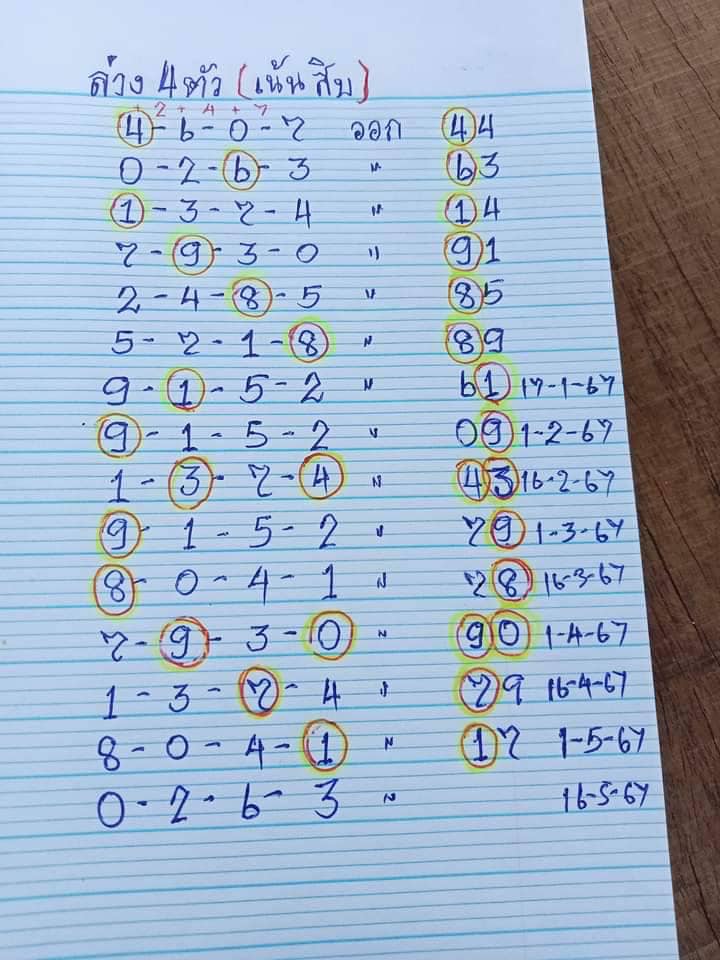 ล่าง 4 ตัว (เน้นสิบ)
+ 2 + 4 + 7
4 - 6 - 0 - 7 ออก 44
0 - 2 - 6 - 3 " 63
1 - 3 - 7 - 4 " 14
7 - 9 - 3 - 0 " 91
2 - 4 - 8 - 5 " 85
5 - 7 - 1 - 8 " 89
9 - 1 - 5 - 2 " 61 17-1-67
9 - 1 - 5 - 2 " 09 1-2-67
1 - 3 - 7 - 4 " 43 16-2-67
9 - 1 - 5 - 2 " 79 1-3-67
8 - 0 - 4 - 1 " 78 16-3-67
7 - 9 - 3 - 0 " 90 1-4-67
1 - 3 - 7 - 4 " 79 16-4-67
8 - 0 - 4 - 1 " 17 1-5-67
0 - 2 - 6 - 3 " 16-5-67